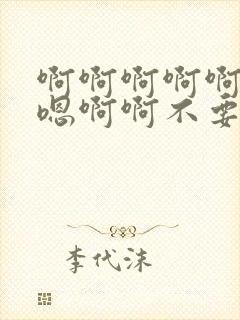 啊啊啊啊啊
嗯啊啊不要
李代沫